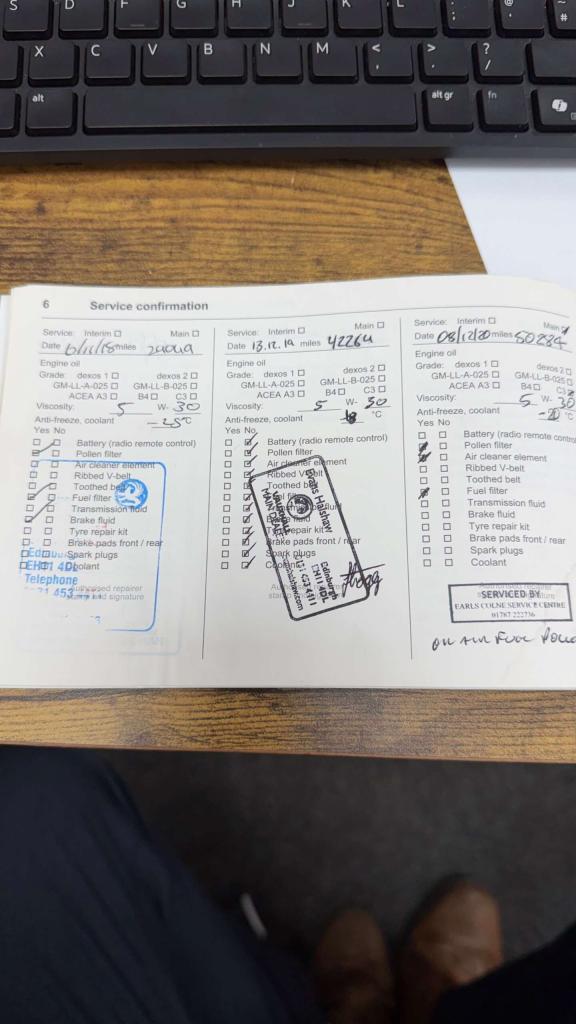 S D F G H J K L : ; @ ' ~ #
X C V B N M < , > . ? /
alt alt gr fn
6 Service confirmation
Service: Interim Main
Date 6/11/18 miles
Engine oil
Grade: dexos 1 dexos 2
GM-LL-A-025 GM-LL-B-025
ACEA A3 B4 C3
Viscosity: 5 W- 30
Anti-freeze, coolant -25°C
Yes No
Battery (radio remote control)
Pollen filter
Air cleaner element
Ribbed V-belt
Toothed belt
Fuel filter
Transmission fluid
Brake fluid
Tyre repair kit
Brake pads front / rear
Spark plugs
Coolant
Authorised repairer
stamp and signature
EH11 4DL
Telephone
Service: Interim Main
Date 13.12.19 miles 42264
Engine oil
Grade: dexos 1 dexos 2
GM-LL-A-025 GM-LL-B-025
ACEA A3 B4 C3
Viscosity: 5 W- 30
Anti-freeze, coolant °C
Yes No
Battery (radio remote control)
Pollen filter
Air cleaner element
Ribbed V-belt
Toothed belt
Fuel filter
Brake fluid
Tyre repair kit
Brake pads front / rear
Spark plugs
Coolant
Evans Halshaw
VAUXHALL
MAIN DEALER
Edinburgh
EH11 4DL
0131 453 4411
Service: Interim Main
Date 08/12/20 miles 50284
Engine oil
Grade: dexos 1 dexos 2
GM-LL-A-025 GM-LL-B-025
ACEA A3 B4 C3
Viscosity: 5 W- 30
Anti-freeze, coolant -20 °C
Yes No
Battery (radio remote contro
Pollen filter
Air cleaner element
Ribbed V-belt
Toothed belt
Fuel filter
Transmission fluid
Brake fluid
Tyre repair kit
Brake pads front / rear
Spark plugs
Coolant
Authorised repairer
SERVICED BY
EARLS COLNE SERVICE CENTRE
01787 222736
OIL AIR FUEL POLLE